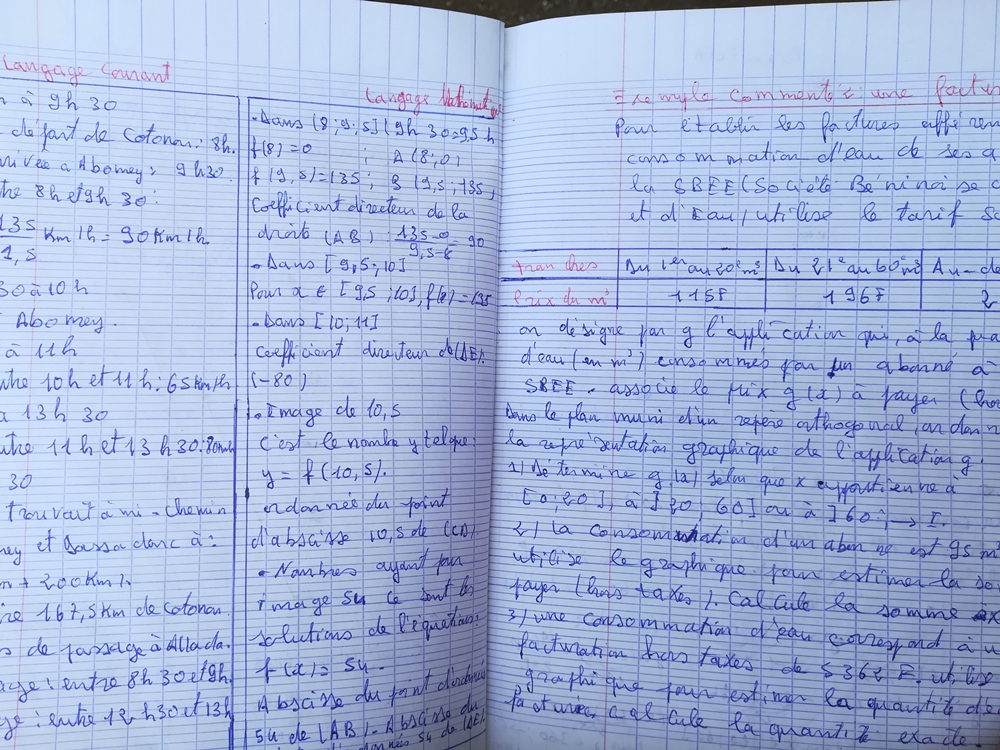 Langage Courant
à 9h 30
départ de Cotonou : 8h.
à Abomey : 9h30.
8h et 9h 30 :
135 Km/h = 90Km/h
1,5
30 à 10h
Abomey.
à 11h
10h et 11h : 65Km/h
à 13h 30
11h et 13h30 : 80
30
trouvait à mi-chemin
et Dassa donc à :
+ 200Km/
167,5Km de Cotonou.
de passage à Allada.
entre 8h30 et 9h.
entre 12h30 et 13h
Langage Mathémat
- Dans [8 ; 9,5] (9h 30 = 9,5 h
f(8) = 0 ; A (8 ; 0)
f(9,5) = 135 ; B (9,5 ; 135
Coefficient directeur de la
droite (AB) : 135-0 = 90
9,5-8
- Dans [9,5 ; 10]
Pour x ∈ [9,5 ; 10], f(x) = 135
- Dans [10 ; 11]
Coefficient directeur de (DE).
(-80)
- Image de 10,5
C'est le nombre y tel que :
y = f(10,5).
ordonnée du point
d'abscisse 10,5 de (CD).
- Nombres ayant pour
image 54 ce sont les
solutions de l'équation :
f(x) = 54.
Abscisse du point d'ordonnée
54 de (AB). Abscisse du
54 de (DE).
Exemple commenté : une factur
Pour établir les factures afféren
consommation d'eau de ses a
la SBEE (Société Béninoise d
et d'Eau) utilise le tarif s
tranches Du 1er au 20e m³ Du 21e au 60e m³ Au-de
Prix du m³ 115F 196F 2
on désigne par g l'application qui, à la
d'eau (en m³) consommés par un abonné à
SBEE. associe le prix g(x) à payer (hor
Dans le plan muni d'un repère orthogonal, on donn
la représentation graphique de l'application g.
1) Détermine g(x) selon que x appartienne à
[0 ; 20], à ]20 ; 60] ou à ]60 ; → [.
2) la consommation d'un abonné est 95 m³
utilise le graphique pour estimer la so
payer (hors taxes). Calcule la somme ex
3) une consommation d'eau correspond à u
facturation hors taxes de 5362 F. utilise
graphique pour estimer la quantité d'e
facturée, calcule la quantité exacte.